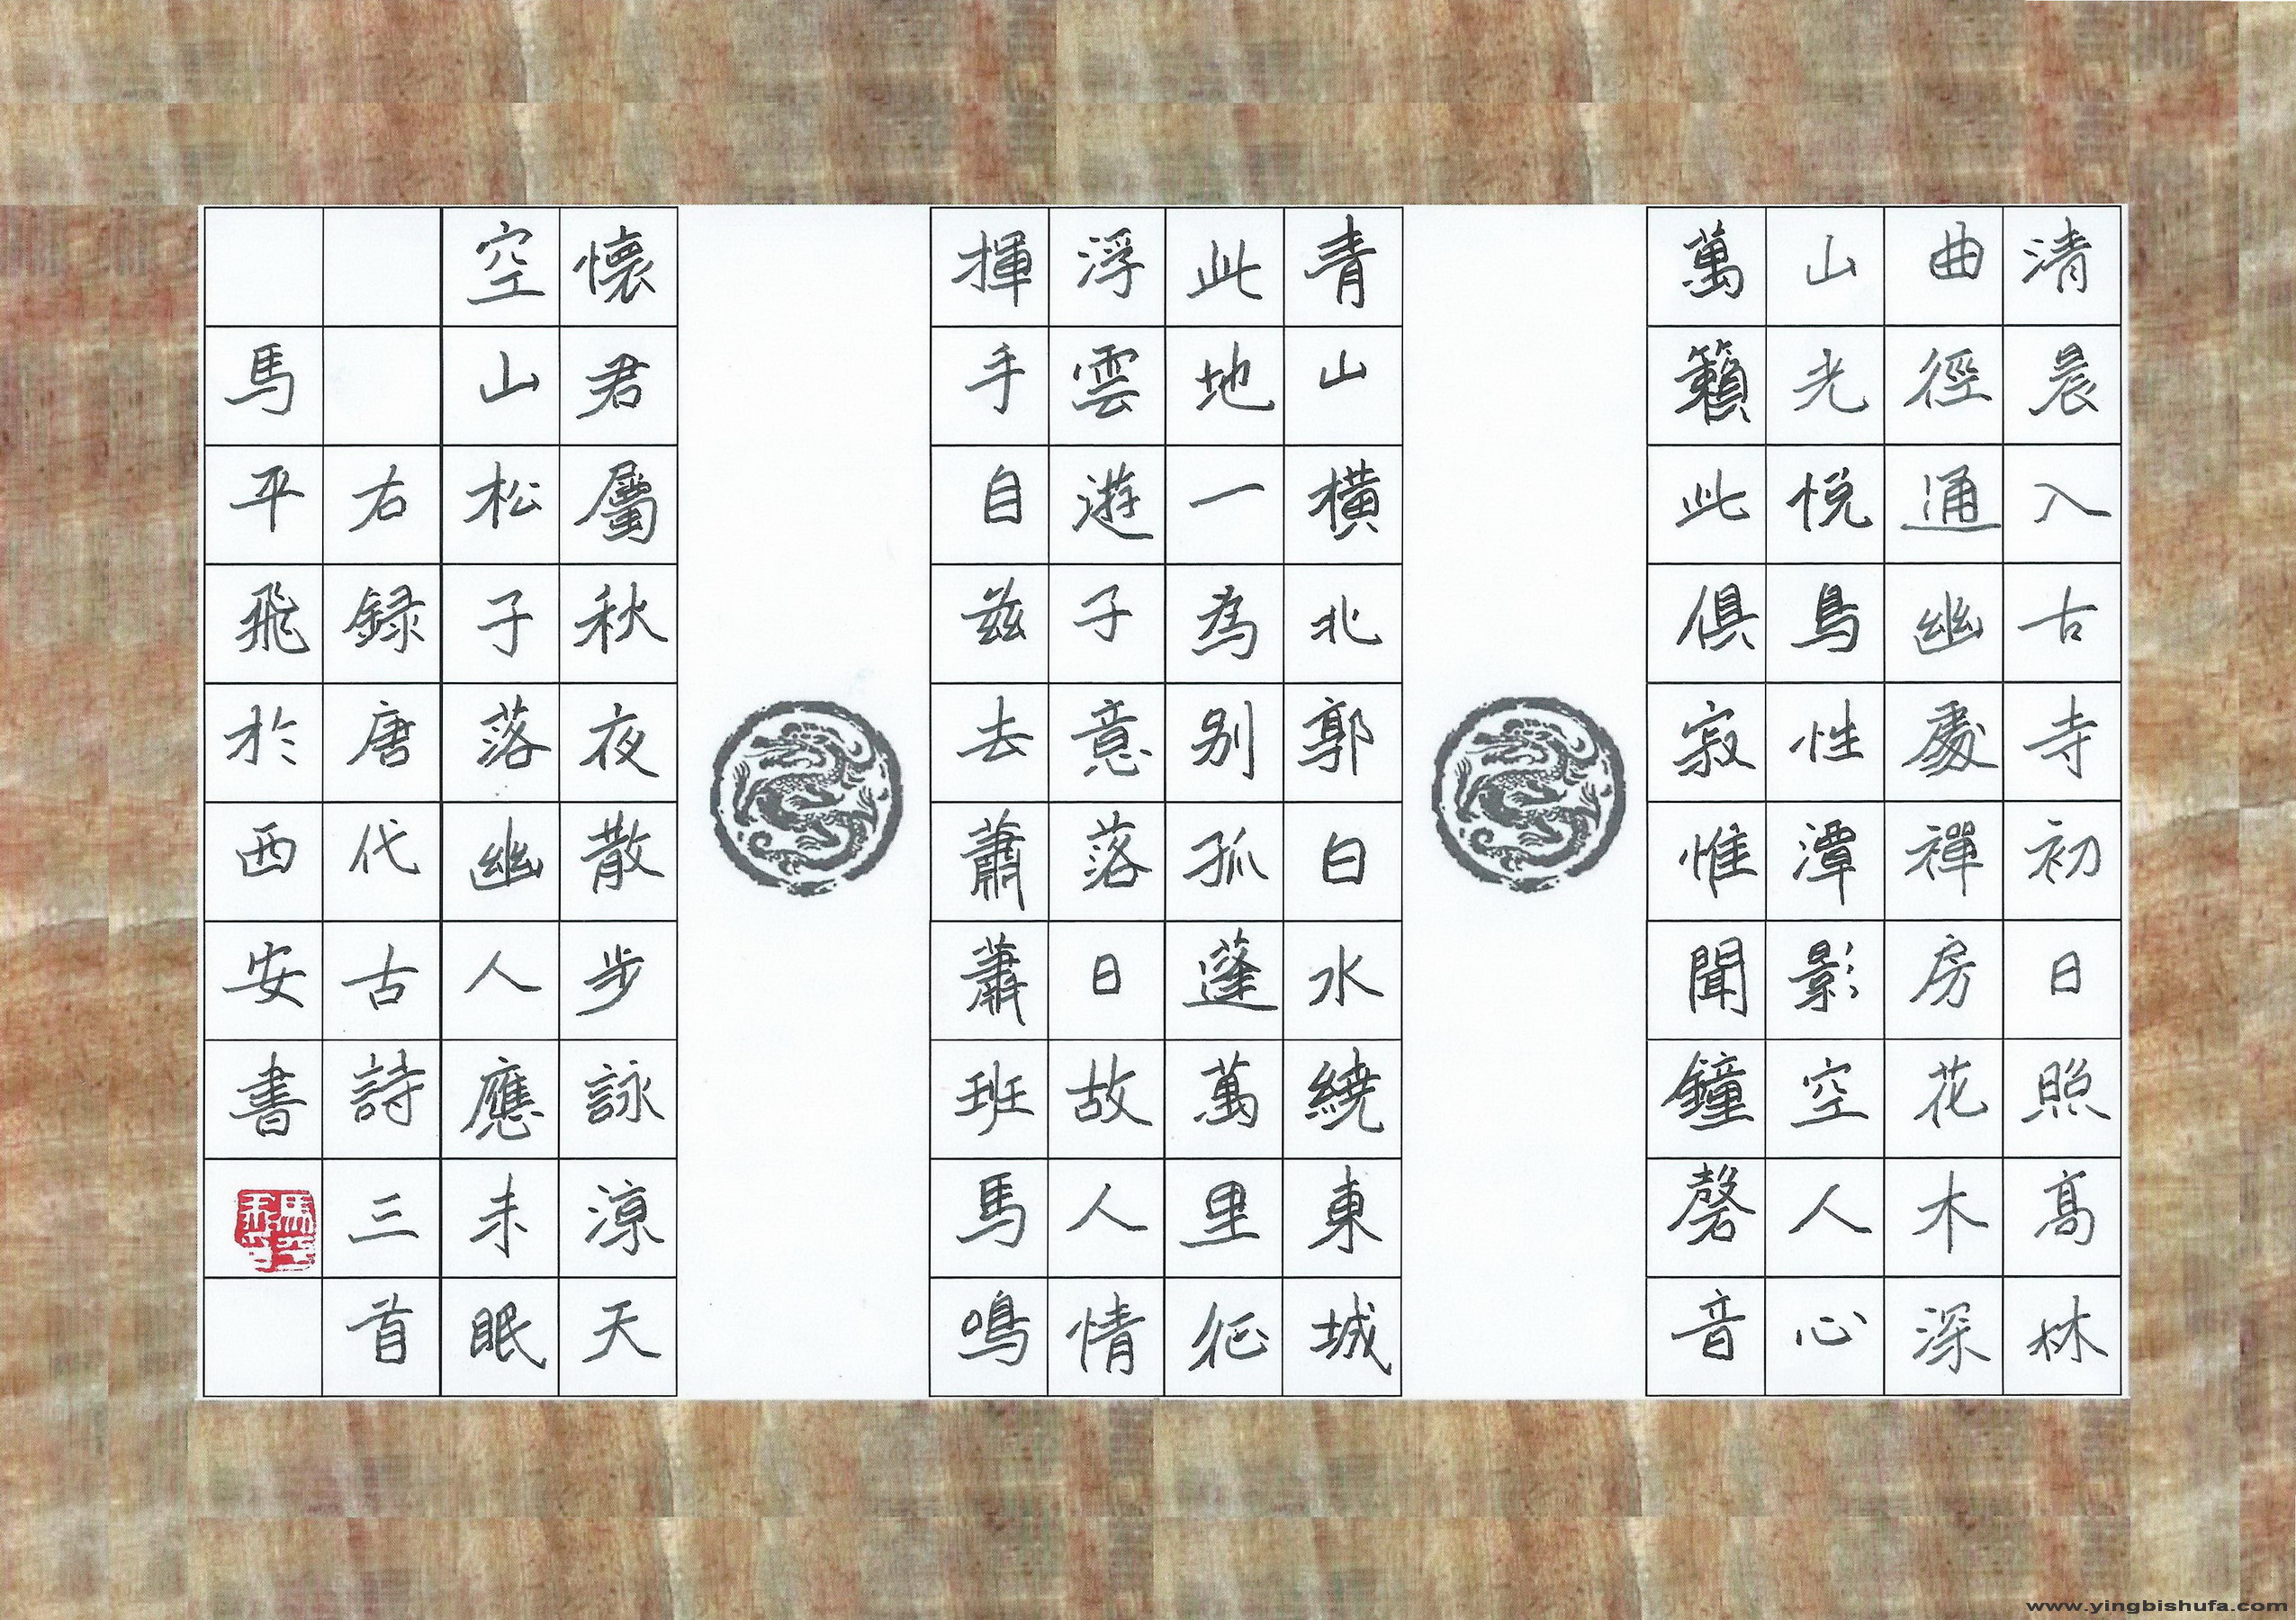 清晨入古寺初日照高林
曲徑通幽處禪房花木深
山光悅鳥性潭影空人心
萬籟此俱寂惟聞鐘磬音
青山橫北郭白水繞東城
此地一為别孤蓬萬里征
浮雲遊子意落日故人情
揮手自茲去蕭蕭班馬鳴
懷君屬秋夜散步詠涼天
空山松子落幽人應未眠
右録唐代古詩三首
馬平飛於西安書
www.yingbishufa.com